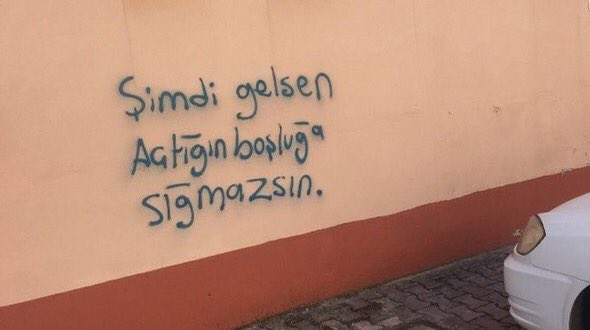 Şimdi gelsen
Açtığın boşluğa
sığmazsın.